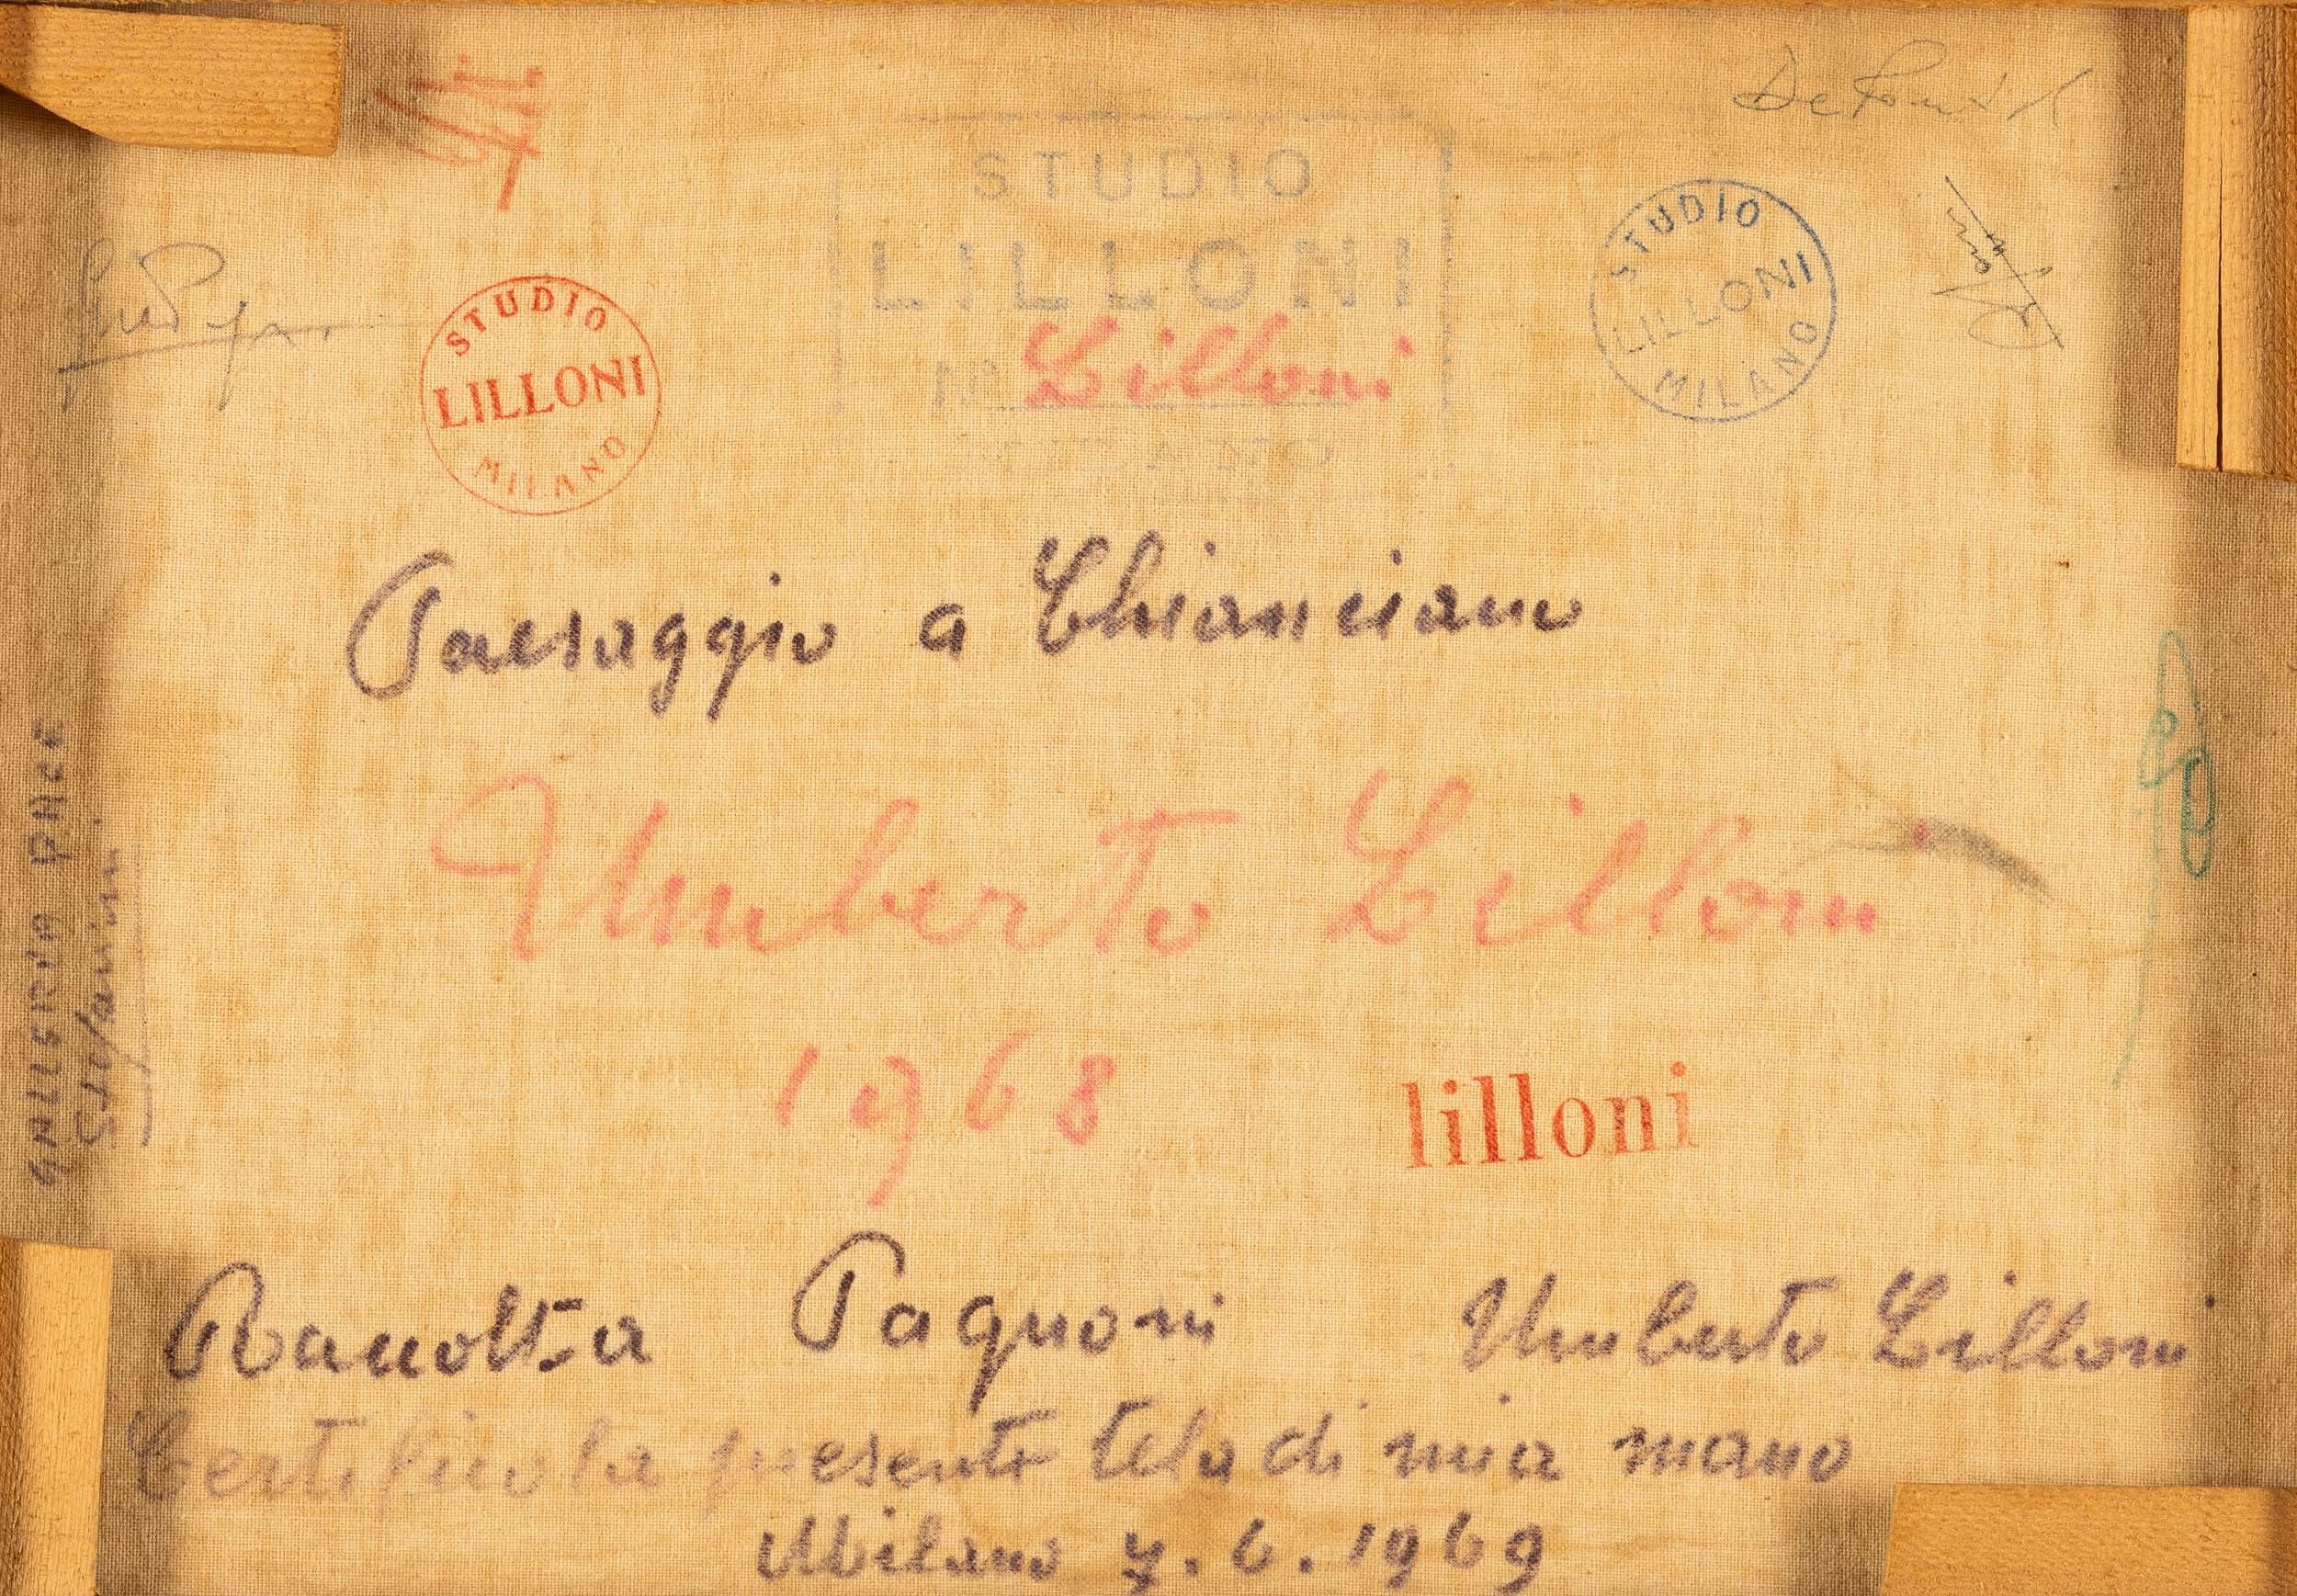 STUDIO
LILLONI
MILANO
STUDIO
LILLONI
N° Lilloni
MILANO
STUDIO
LILLONI
MILANO
Paesaggio a Chianciano
Umberto Lilloni
1968
lilloni
GALLERIA PACE
Raccolta Pagnoni Umberto Lilloni
Certifico la presente tela di mia mano
Milano 7.6.1969